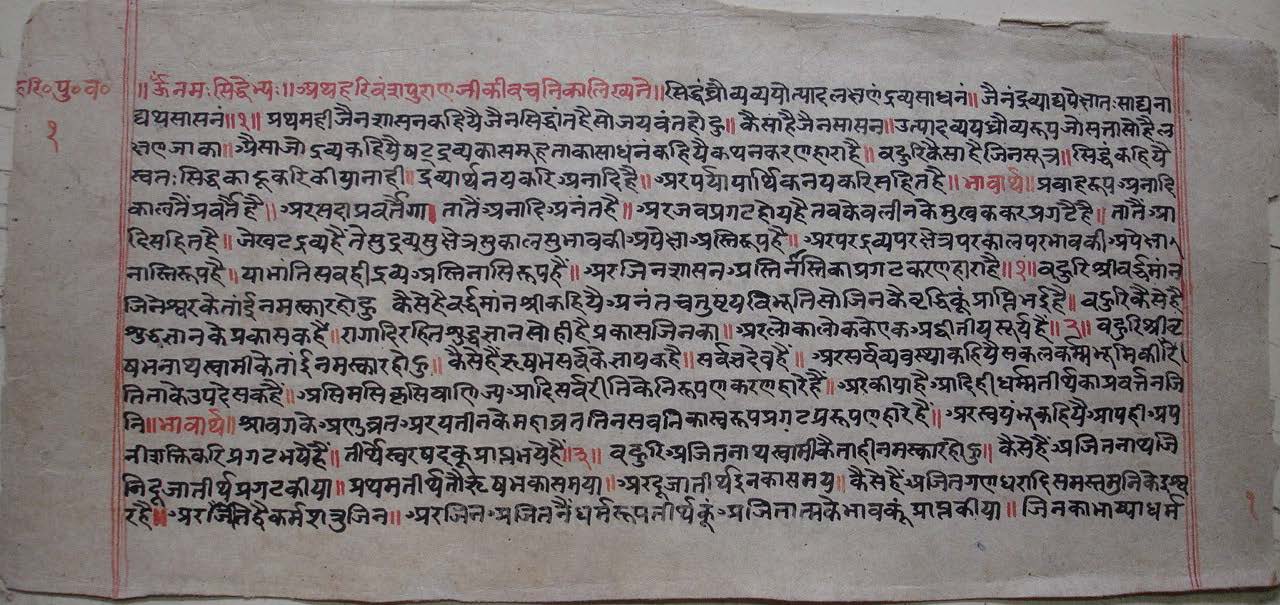 हरि॰ पु॰ व॰
१
॥ॐ नमः सिद्धेभ्यः॥ अथ हरिवंशपुराणजी की वचनिका लिख्यते॥ सिद्धं ध्रौव्यव्ययोत्पादलक्षणं द्रव्यसाधनं॥ जैनं द्रव्याद्यपेक्षातः साद्यना
द्यथसासनं॥१॥ प्रथमही जैनशासन कहियै जैनसिद्धांत है सो जयवंत होहु॥ कैसा है जैनसासन॥ उत्पादव्ययध्रौव्यरूप जो सत्ता सो है ल
क्षण जाका॥ अैसा जो द्रव्य कहियै षटद्रव्य का समूह ताका साधनं कहियै कथन करणहारा है॥ बहुरि कैसा है जिनसूत्र॥ सिद्धं कहियै
स्वतः सिद्ध काहू करि कीया नाही॥ द्रव्यार्थनय करि अनादि है॥ अर पर्यायार्थिकनय करि सहित है॥ भावार्थ॥ प्रवाहरूप अनादि
काल तैं प्रवर्तै है॥ अर सदा प्रवर्तैगा॥ तातैं अनादि अनंत है॥ अर जब प्रगट होय है तब केवलीन के मुख क कर प्रगटै है॥ तातैं आ
दि सहित है॥ जे खट द्रव्य हैं ते सुद्रव्य सुक्षेत्र सुकाल सुभाव की अपेक्षा अस्तिरूप है॥ अर परद्रव्य परक्षेत्र परकाल परभाव की अपेक्षा
नास्तिरूप है॥ या भांति सबही द्रव्य अस्तिनास्तिरूप हैं॥ अर जिनशासन अस्ति नास्ति का प्रगट करणहारा है॥१॥ बहुरि श्री वर्द्धमांन
जिनेश्वर के तांई नमस्कार होहु कैसे है वर्द्धमांन श्री कहियै अनंतचतुष्टय विभूति सो जिनकै वृद्धि कूं प्राप्ति भई है॥ बहुरि कैसे है
शुद्ध ज्ञान के प्रकासक है॥ रागादिरहित शुद्ध ज्ञान सो ही है प्रकास जिनका॥ अर लोकालोक के एक अद्वितीय सूर्य हैं॥२॥ बहुरि श्री वृ
षभनाथ स्वामी के तांई नमस्कार होहु॥ कैसे हैं ऋषभ सर्व के ज्ञायक है॥ सर्वज्ञदेव हैं॥ अर सर्व व्यवस्था कहियै सकल कर्म्मभूमि की री
ति ताके उपदेसक है॥ असि मसि कृसि वाणिज्य आदि सर्व रीति के निरूपण करणहारे हैं॥ अर कीया है आदि ही धर्म्मतीर्थ का प्रवर्त्तन जि
नि॥ भावार्थ॥ श्रावग के अणुव्रत अर यतीन के महाव्रत तिन सबनि का स्वरूप प्रगट प्ररूपणहारे हैं॥ अर स्वयंभू कहियै आपही अप
नी शक्ति करि प्रगट भये हैं॥ तीर्थेस्वर पद कू प्राप्त भये हैं॥३॥ बहुरि अजितनाथ स्वामी कै तांही नमस्कार होहु॥ कैसे हैं अजितनाथ जि
नि दूजा तीर्थ प्रगट कीया॥ प्रथम तीर्थ तौ ऋषभ का समया॥ अर दूजा तीर्थ इनका समय॥ कैसे हैं अजित गणधरादि समस्त मुनि के ईश्व
र है॥ अर जीते है कर्मशत्रु जिन॥ अर जिन अजित नैं धर्मरूप तीर्थ कूं अजितात्मकै भाव कूं प्राप्त कीया॥ जिनका भाष्या धर्म
१